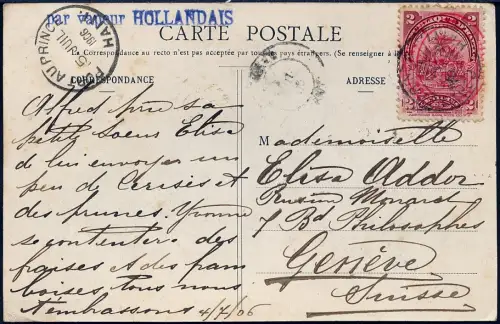 par vapeur HOLLANDAIS
CARTE POSTALE
La Correspondance au recto n'est pas acceptée par tous les pays étrangers. (Se renseigner à
CORRESPONDANCE
ADRESSE
PORT AU PRINCE
HAITI
5 JUIL
1906
2
2
Alfred prie sa
petite soeur Elisa
de lui envoyer un
peu de Cerises et
des prunes. Yvonne
se contentera des
fraises et des fram
boises, tous nous
t'embrassons 4/7/06
Mademoiselle
Elisa Addor
Pension Monard
7 Bd Philosophes
Genève
Suisse